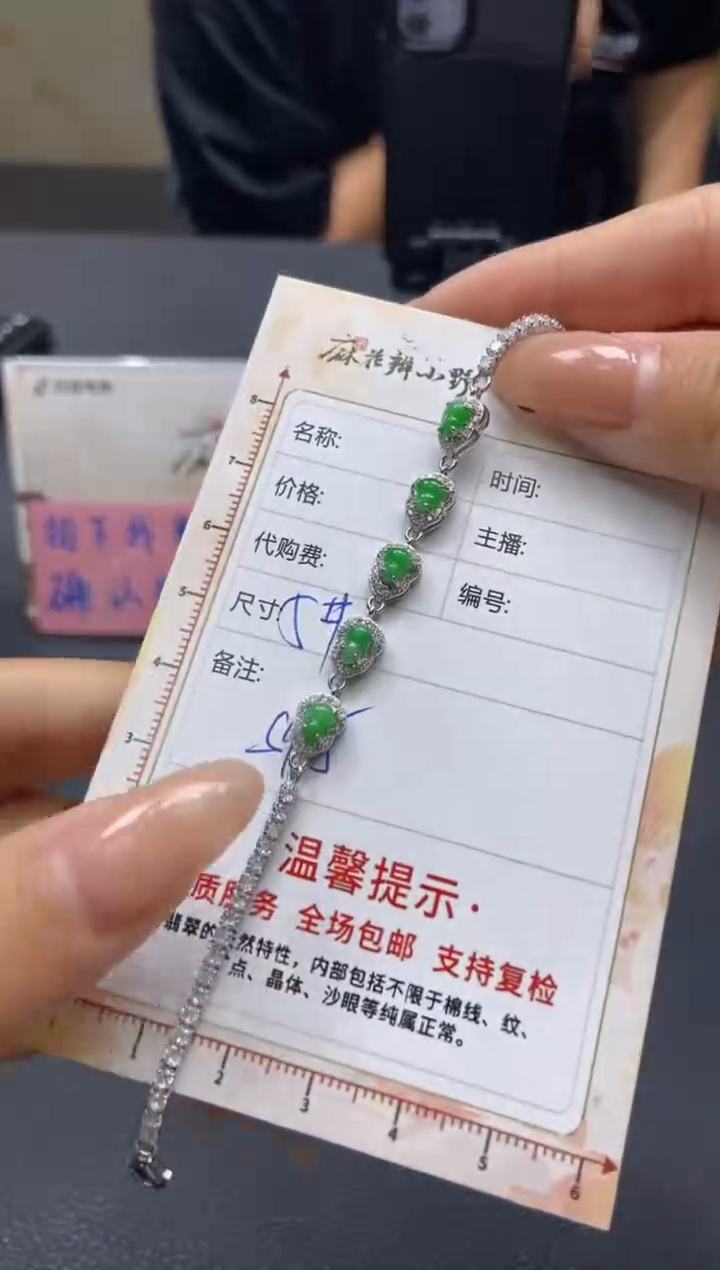 麻花辫小野
名称:
时间:
价格:
主播:
代购费:
编号:
尺寸:
备注:
温馨提示·
全场包邮 支持复检
翡翠的天然特性，内部包括不限于棉线、纹、
点、晶体、沙眼等纯属正常。
8
7
6
5
4
3
1 2 3 4 5 6
确认